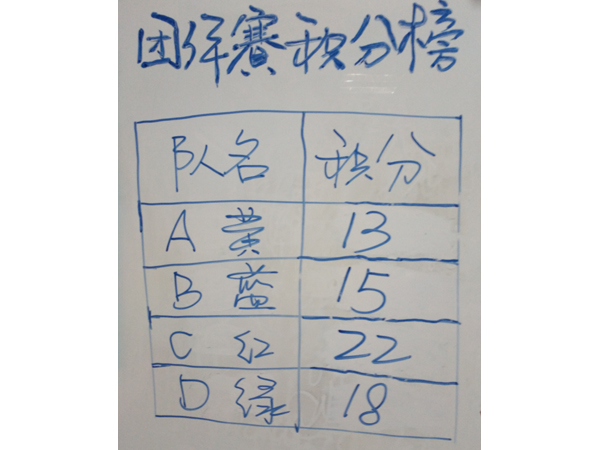 团体赛积分榜
队名 积分
A 黄 13
B 蓝 15
C 红 22
D 绿 18